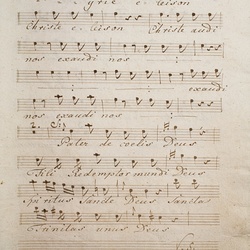 Kyrie e- leison
Christe e- leison Christe audi
nos exaudi nos
exaudi
nos exaudi nos
Pater de coelis Deus
Fili Redemptor mundi Deus
Spiritus Sancte Deus Sanctas
Trinitas unus Deus